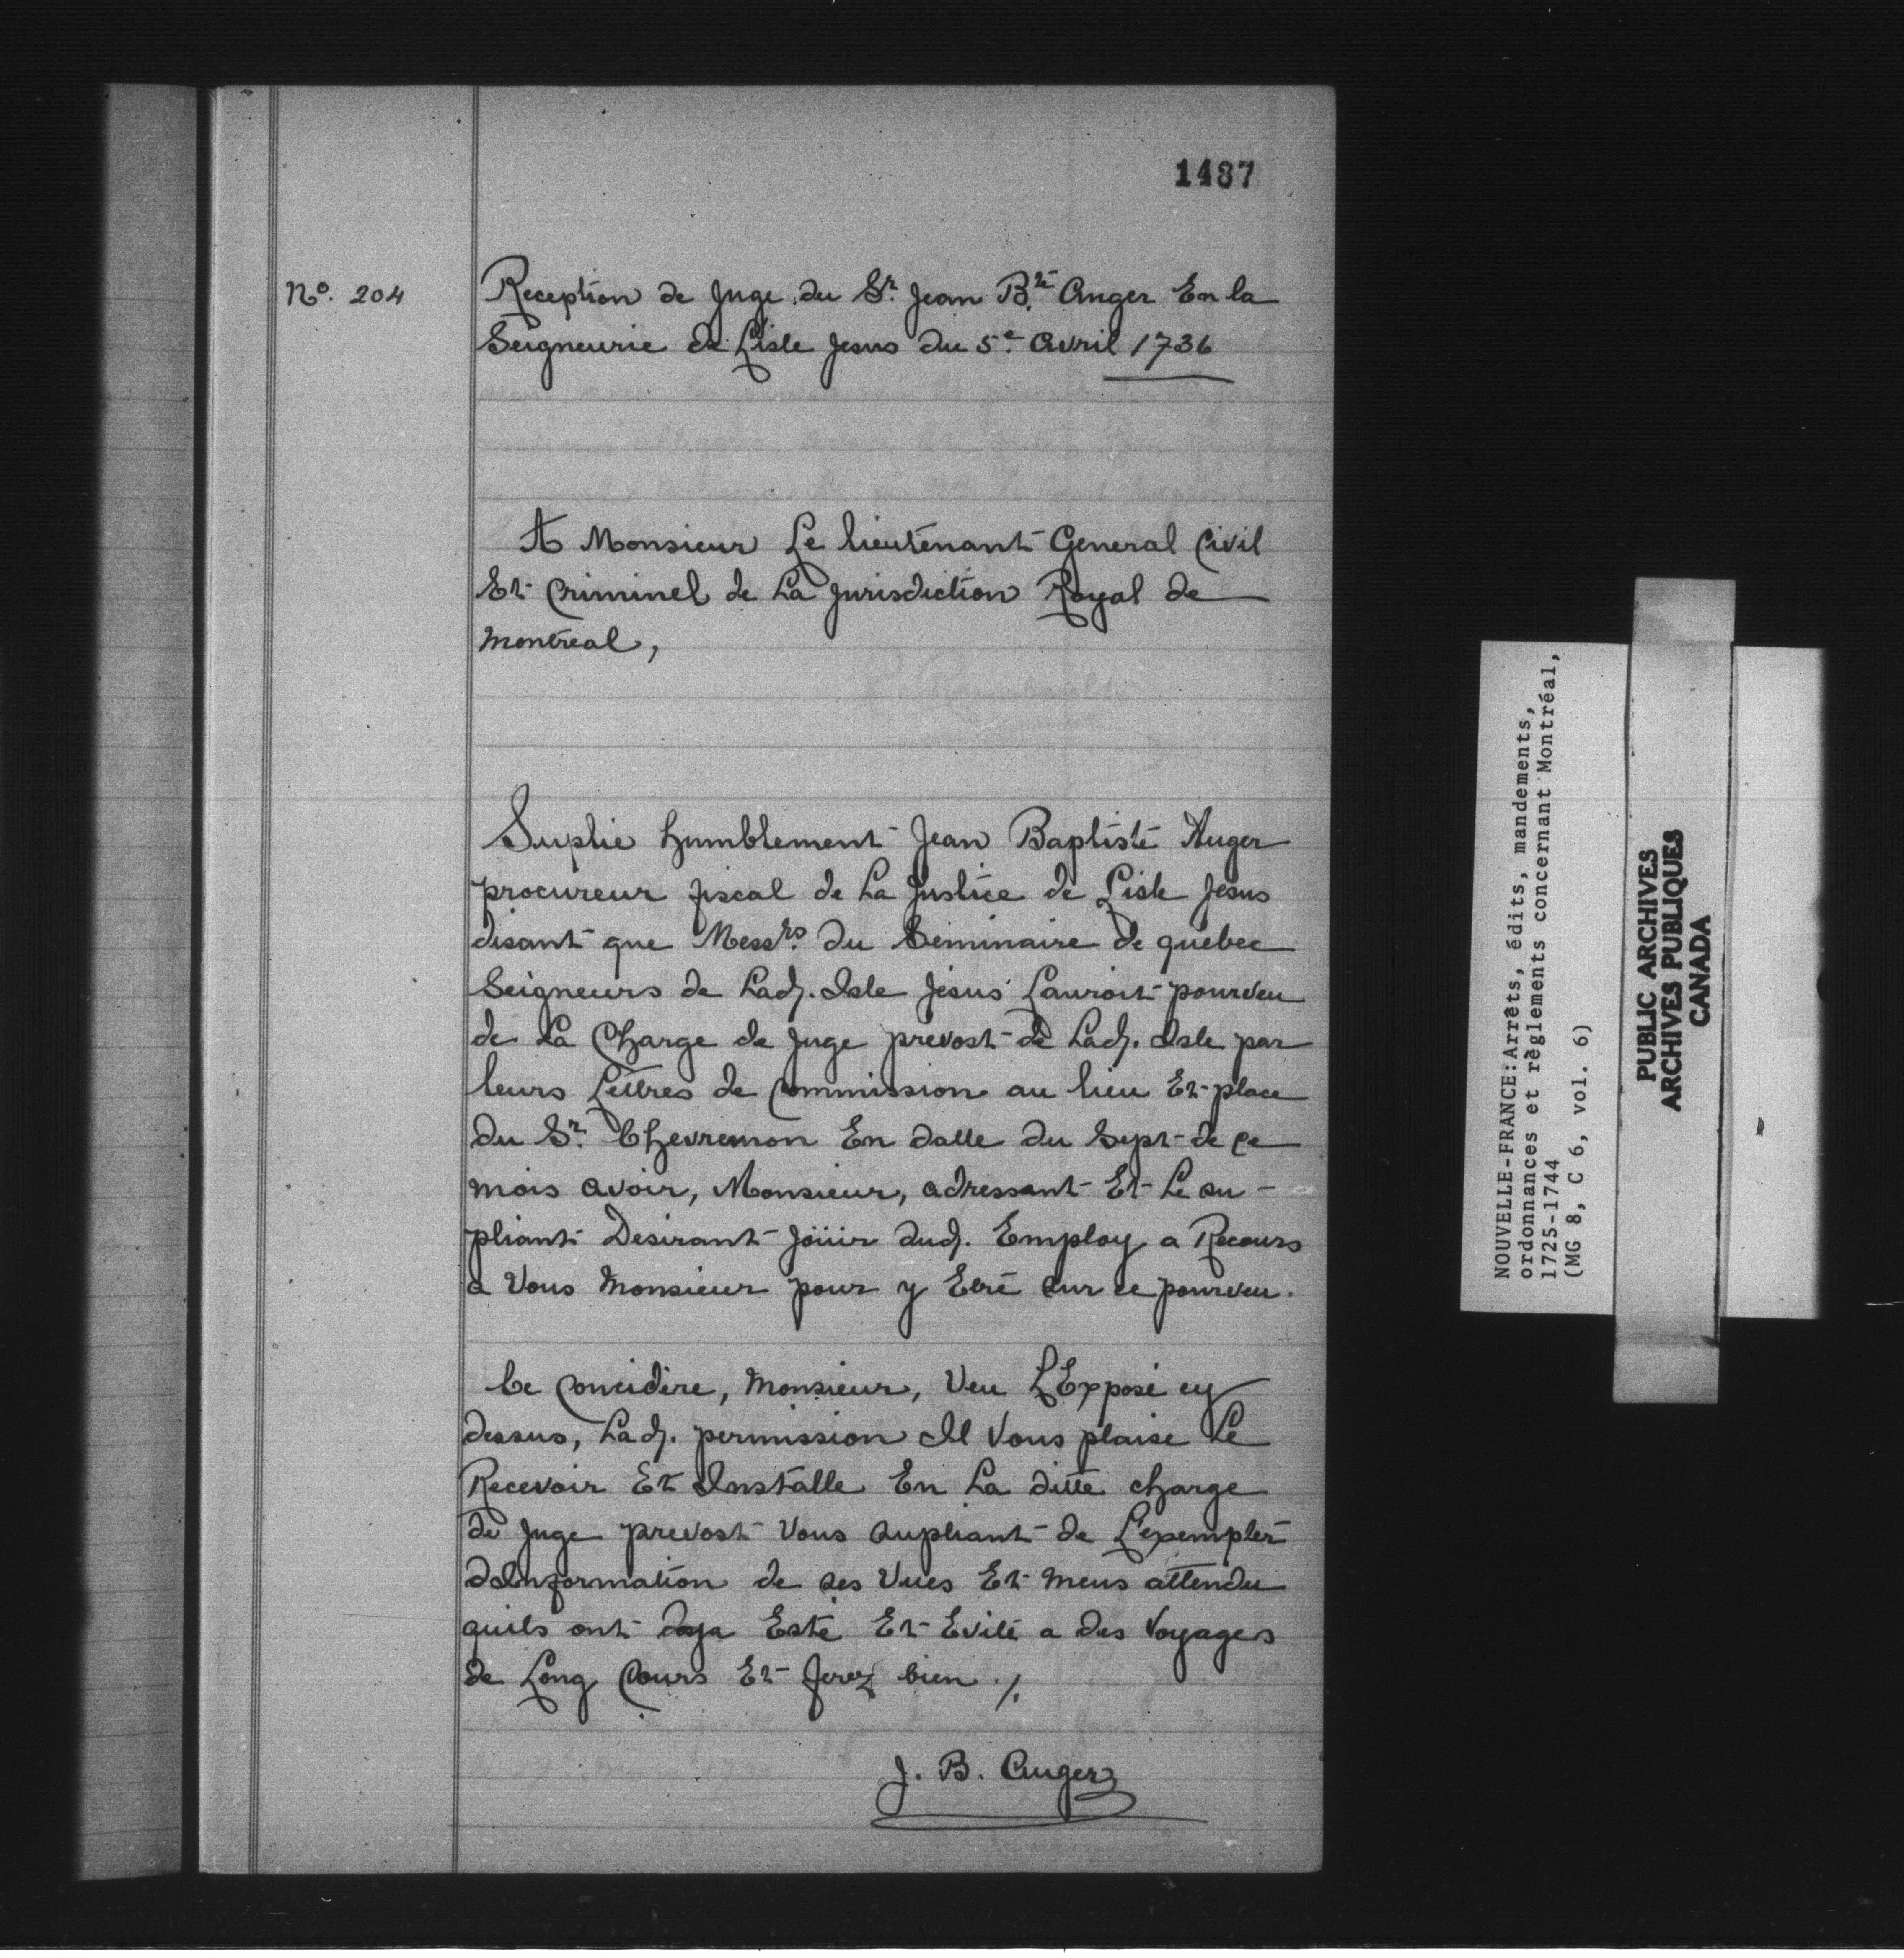 1487
No. 204
Reception de Juge du Sr. Jean Bte. Auger En la
Seigneurie de Lisle Jesus du 5e. Avril 1736
A Monsieur Le lieutenant General Civil
Et Criminel de La Jurisdiction Royal de
Montreal,
Suplie humblement Jean Baptiste Auger
procureur fiscal de La Justice de Lisle Jesus
disant que Messrs. du Seminaire de quebec
Seigneurs de Lad. Isle Jesus Lauroit pourveu
de La Charge de Juge prevost de Lad. Isle par
leurs Lettres de Commission au lieu Et place
du Sr. Chevremon En datte du Sept de ce
mois avoir, Monsieur, adressant Et Le su-
pliant Desirant joüir dud. Employ a Recours
a Vous Monsieur pour y Etre sur ce pourveu.
Ce Considére, Monsieur, Veu LExposé cy
dessus, Lad. permission Il Vous plaise Le
Recevoir Et Installe En La ditte charge
de Juge prevost Vous supliant de L'exempter
dInformation de ses Vues Et meus attendu
quils ont deja Esté Et Evité a des Voyages
de Long Cours Et ferez bien ./.
J. B. Auger
NOUVELLE-FRANCE: Arrêts, édits, mandements,
ordonnances et règlements concernant Montréal,
1725-1744
(MG 8, C 6, vol. 6)
PUBLIC ARCHIVES
ARCHIVES PUBLIQUES
CANADA